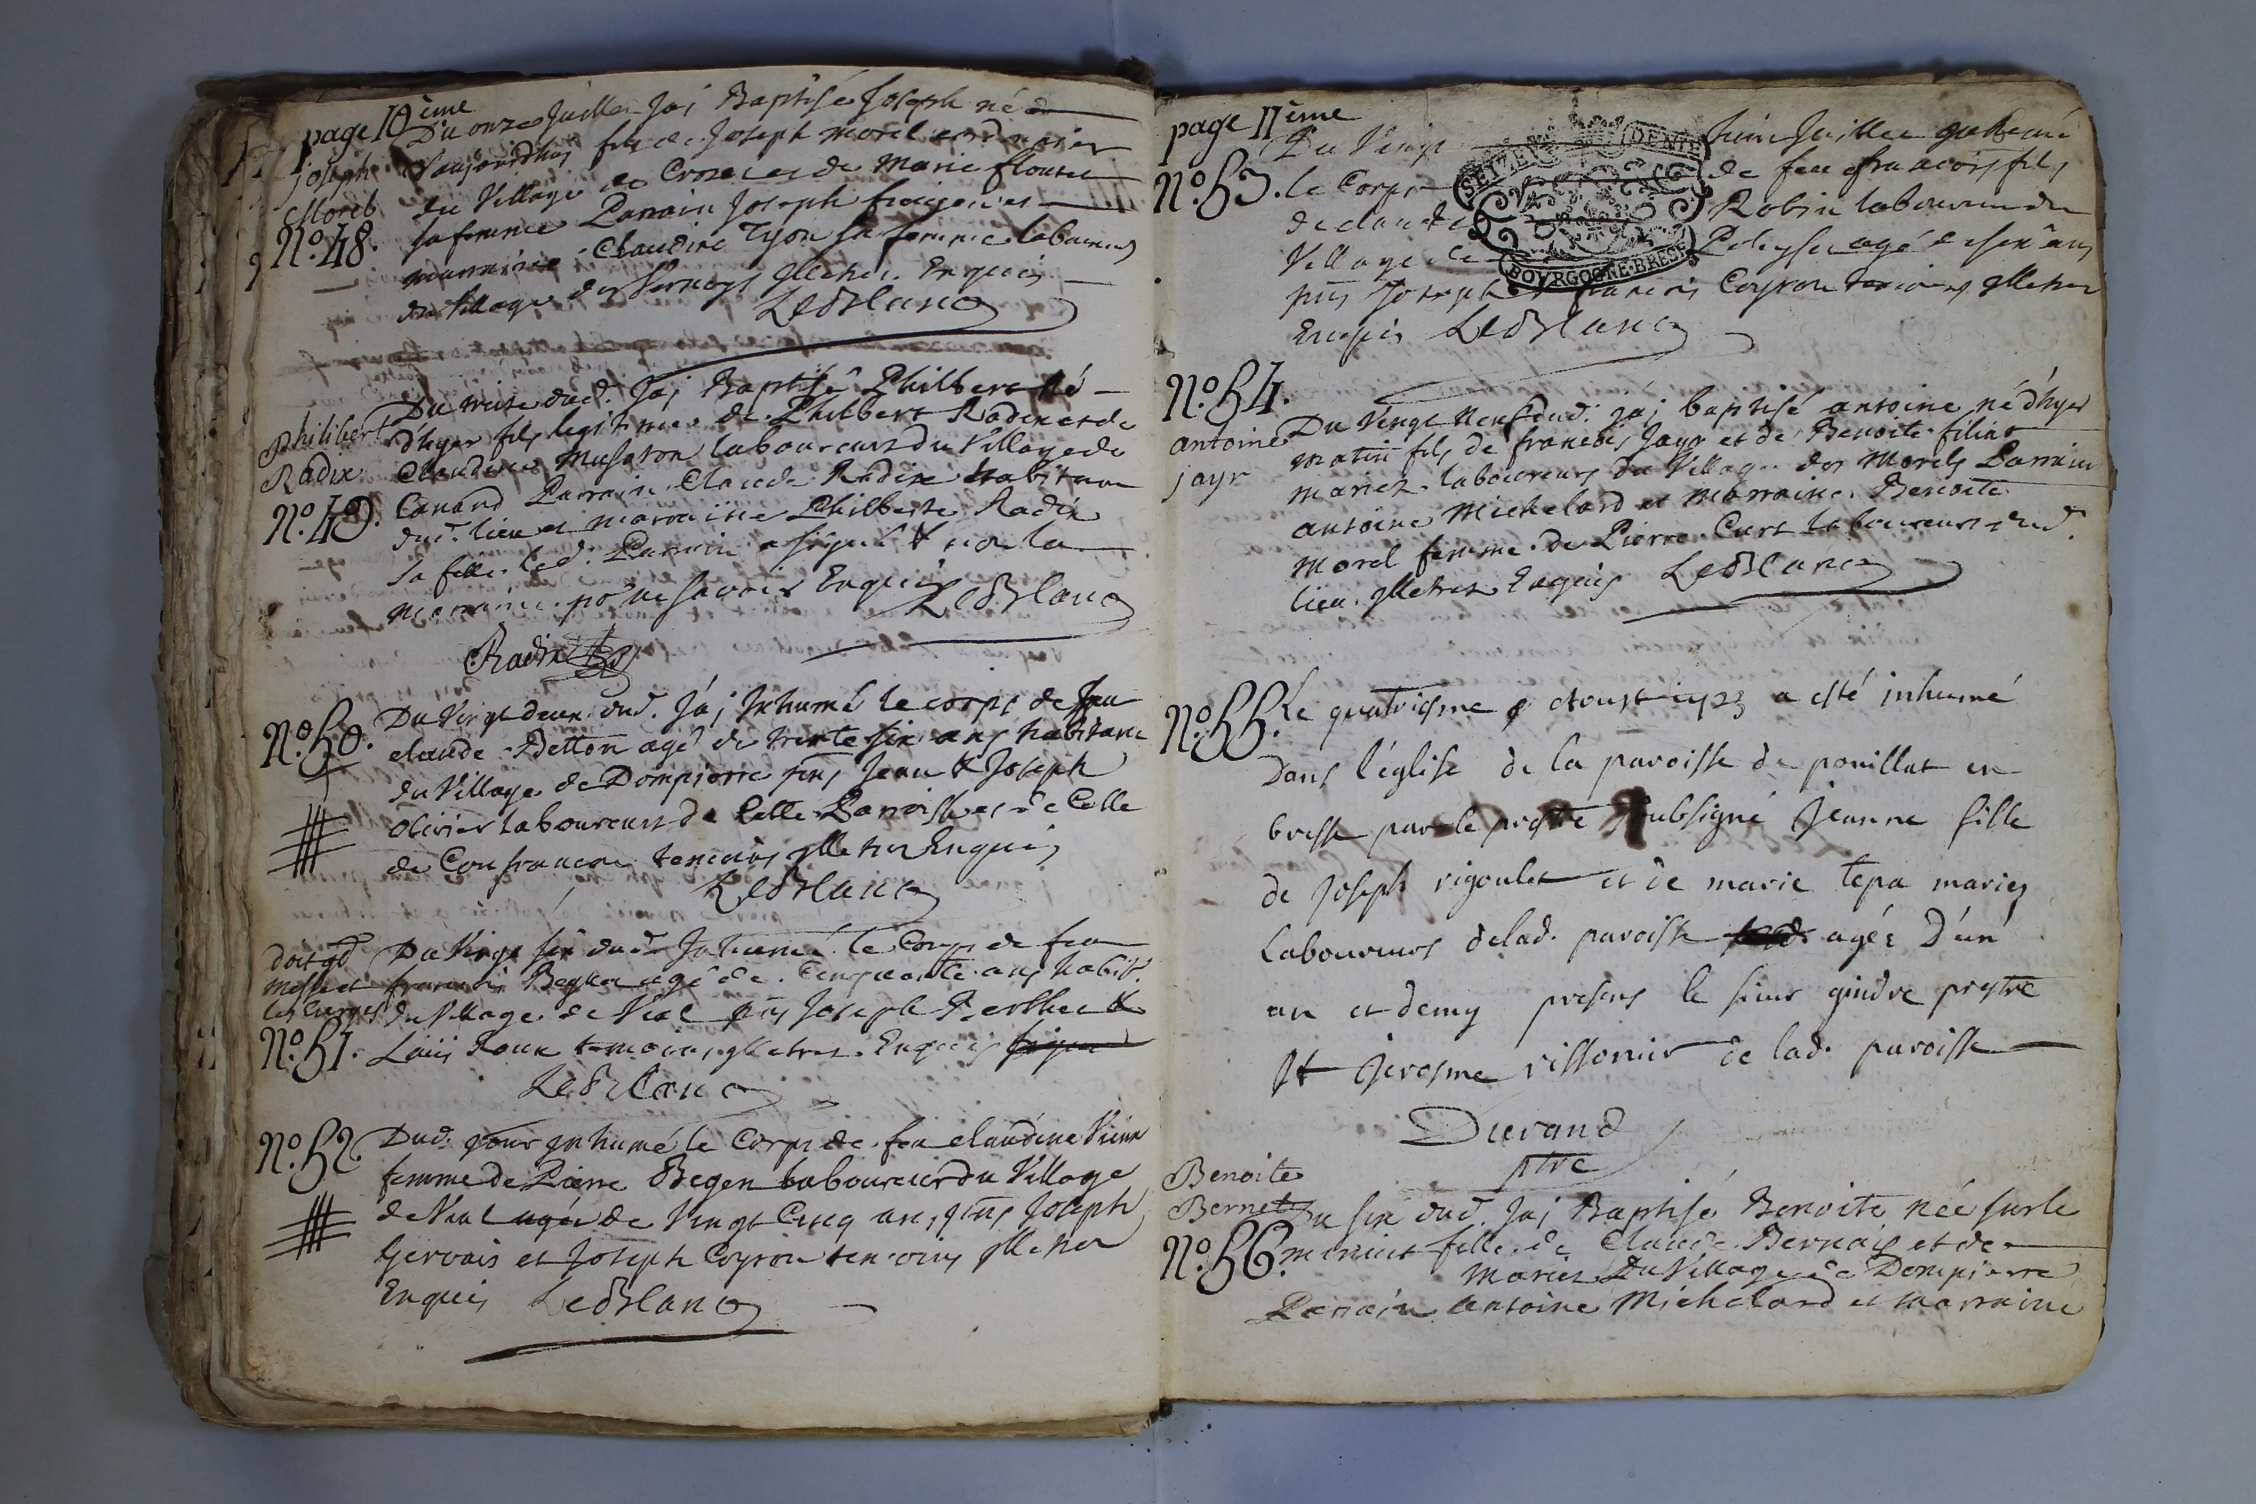 page 10ème
Du onze Juillet Jai Baptisé Joseph né
joseph
Morel
N.º 48.
fils de Joseph morel
du Village de et de Marie
sa femme Parrain Joseph
marraine Claudine Tyon sa femme laboureurs
du Village des Enquis
LeBlanc
Philibert
Radix
N.º 49.
Du treize dud. Jai Baptisé Philbert Né
d'hyer fils legitime de Philbert Radix et de
Claudine laboureurs du Village de
Canard Parrain Claude Radix habitant
dud. lieu et marraine Philberte Radix
sa fille led. Parrain a signé & non la
marraine po.r ne savoir Enquis LeBlanc
Radix
N.º 50.
Du Vingt deux dud. Jái Inhumé le corps de feu
claude Betton agé de trente six ans habitant
du Village de Dompierre pñs Jean & Joseph
olivier laboureurs de Cette Parroisse et de Celle
de Confrancon temoins Illetrez Enquis
LeBlanc
messe et
N.º 51.
Du Vingt six dud. Inhumé le Corps de feu
francois agé de Cinquante ans habit.
du Village de Viol pñs Joseph &
Loüis Roux temoins Illetrez Enquis
LeBlanc
N.º 52.
Dud. jour inhumé le Corps de feu claudine Vieux
femme de Pierre Begen laboureur du Village
de agée de Vingt Cinq ans pñs Joseph
Gervais et Joseph Coyron temoins Illetrez
Enquis LeBlanc
page 11ème
N.º 53.
Du Vingt huit Juillet
le Corps de feu francois fils
de claude Robin laboureur du
Village de agé de six ans
pñs Joseph & francois Coyron temoins Illetrez
Enquis LeBlanc
SEIZE DENIE
BOVRGOGNE·BRESE
N.º 54.
antoine
jayr
Du Vingt neuf dud. jái baptisé antoine né d'hyer
matin fils de francois Jayr et de Benoite filiat
mariez laboureurs du Village des Morels Parrain
antoine Michelard et marraine Benoite
Morel femme de Pierre Curt laboureurs dud.
lieu Illetrez Enquis LeBlanc
N.º 55.
Le quatriesme aoust 1723 a esté inhumé
Dans l'église de la paroisse de pouillat en
bresse par le prestre soubsigné Jeanne fille
de Joseph rigoulet et de marie tepa mariez
Laboureurs de lad. paroisse agée D'un
an et demy presens le sieur gindre prestre
et jerosme rissonier de lad. paroisse
Durand
ptre
Benoite
Bernet
N.º 56.
Du six dud. Jai Baptisé Benoite née sur le
minuit fille de Claude et de
mariez Du Village de Dompierre
Parrain Antoine Michelard et marraine